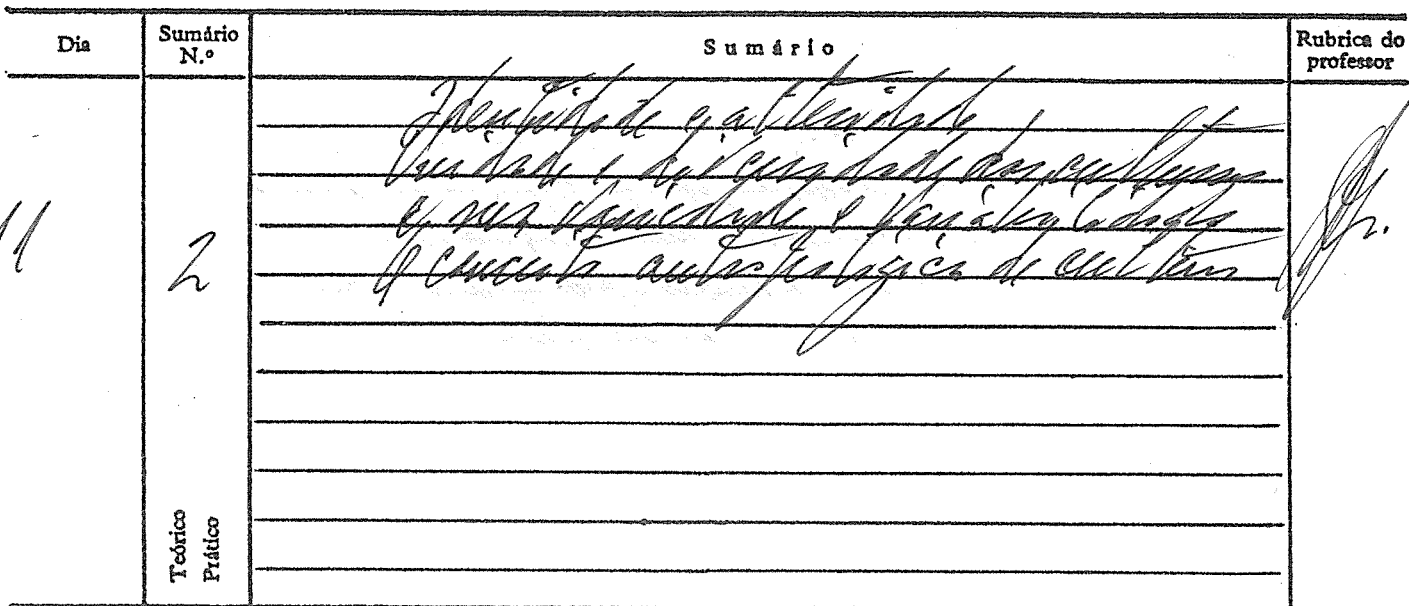 Dia
Sumário N.º
Sumário
Rubrica do professor
11
2
Identidade e alteridade
Unidade e diversidade das culturas
e variedade e variabilidade
O conceito antropológico de cultura
Teórico
Prático